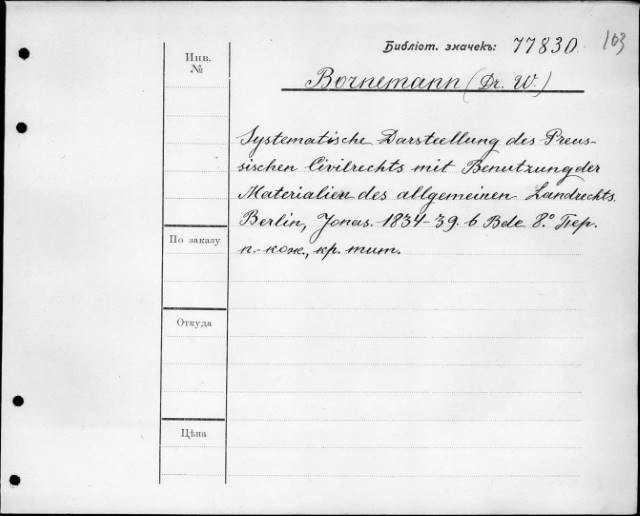 Библіот. значекъ: 77830. 103
Инв.
№
Bornemann (Dr. W.)
Systematische Darstellung des Preus-
sischen Civilrechts mit Benutzung der
Materialien des allgemeinen Landrechts.
Berlin, Jonas. 1834-39. 6 Bde 8.° Пер.
п.-кож., кр. тит.
По заказу
Откуда
Цѣна